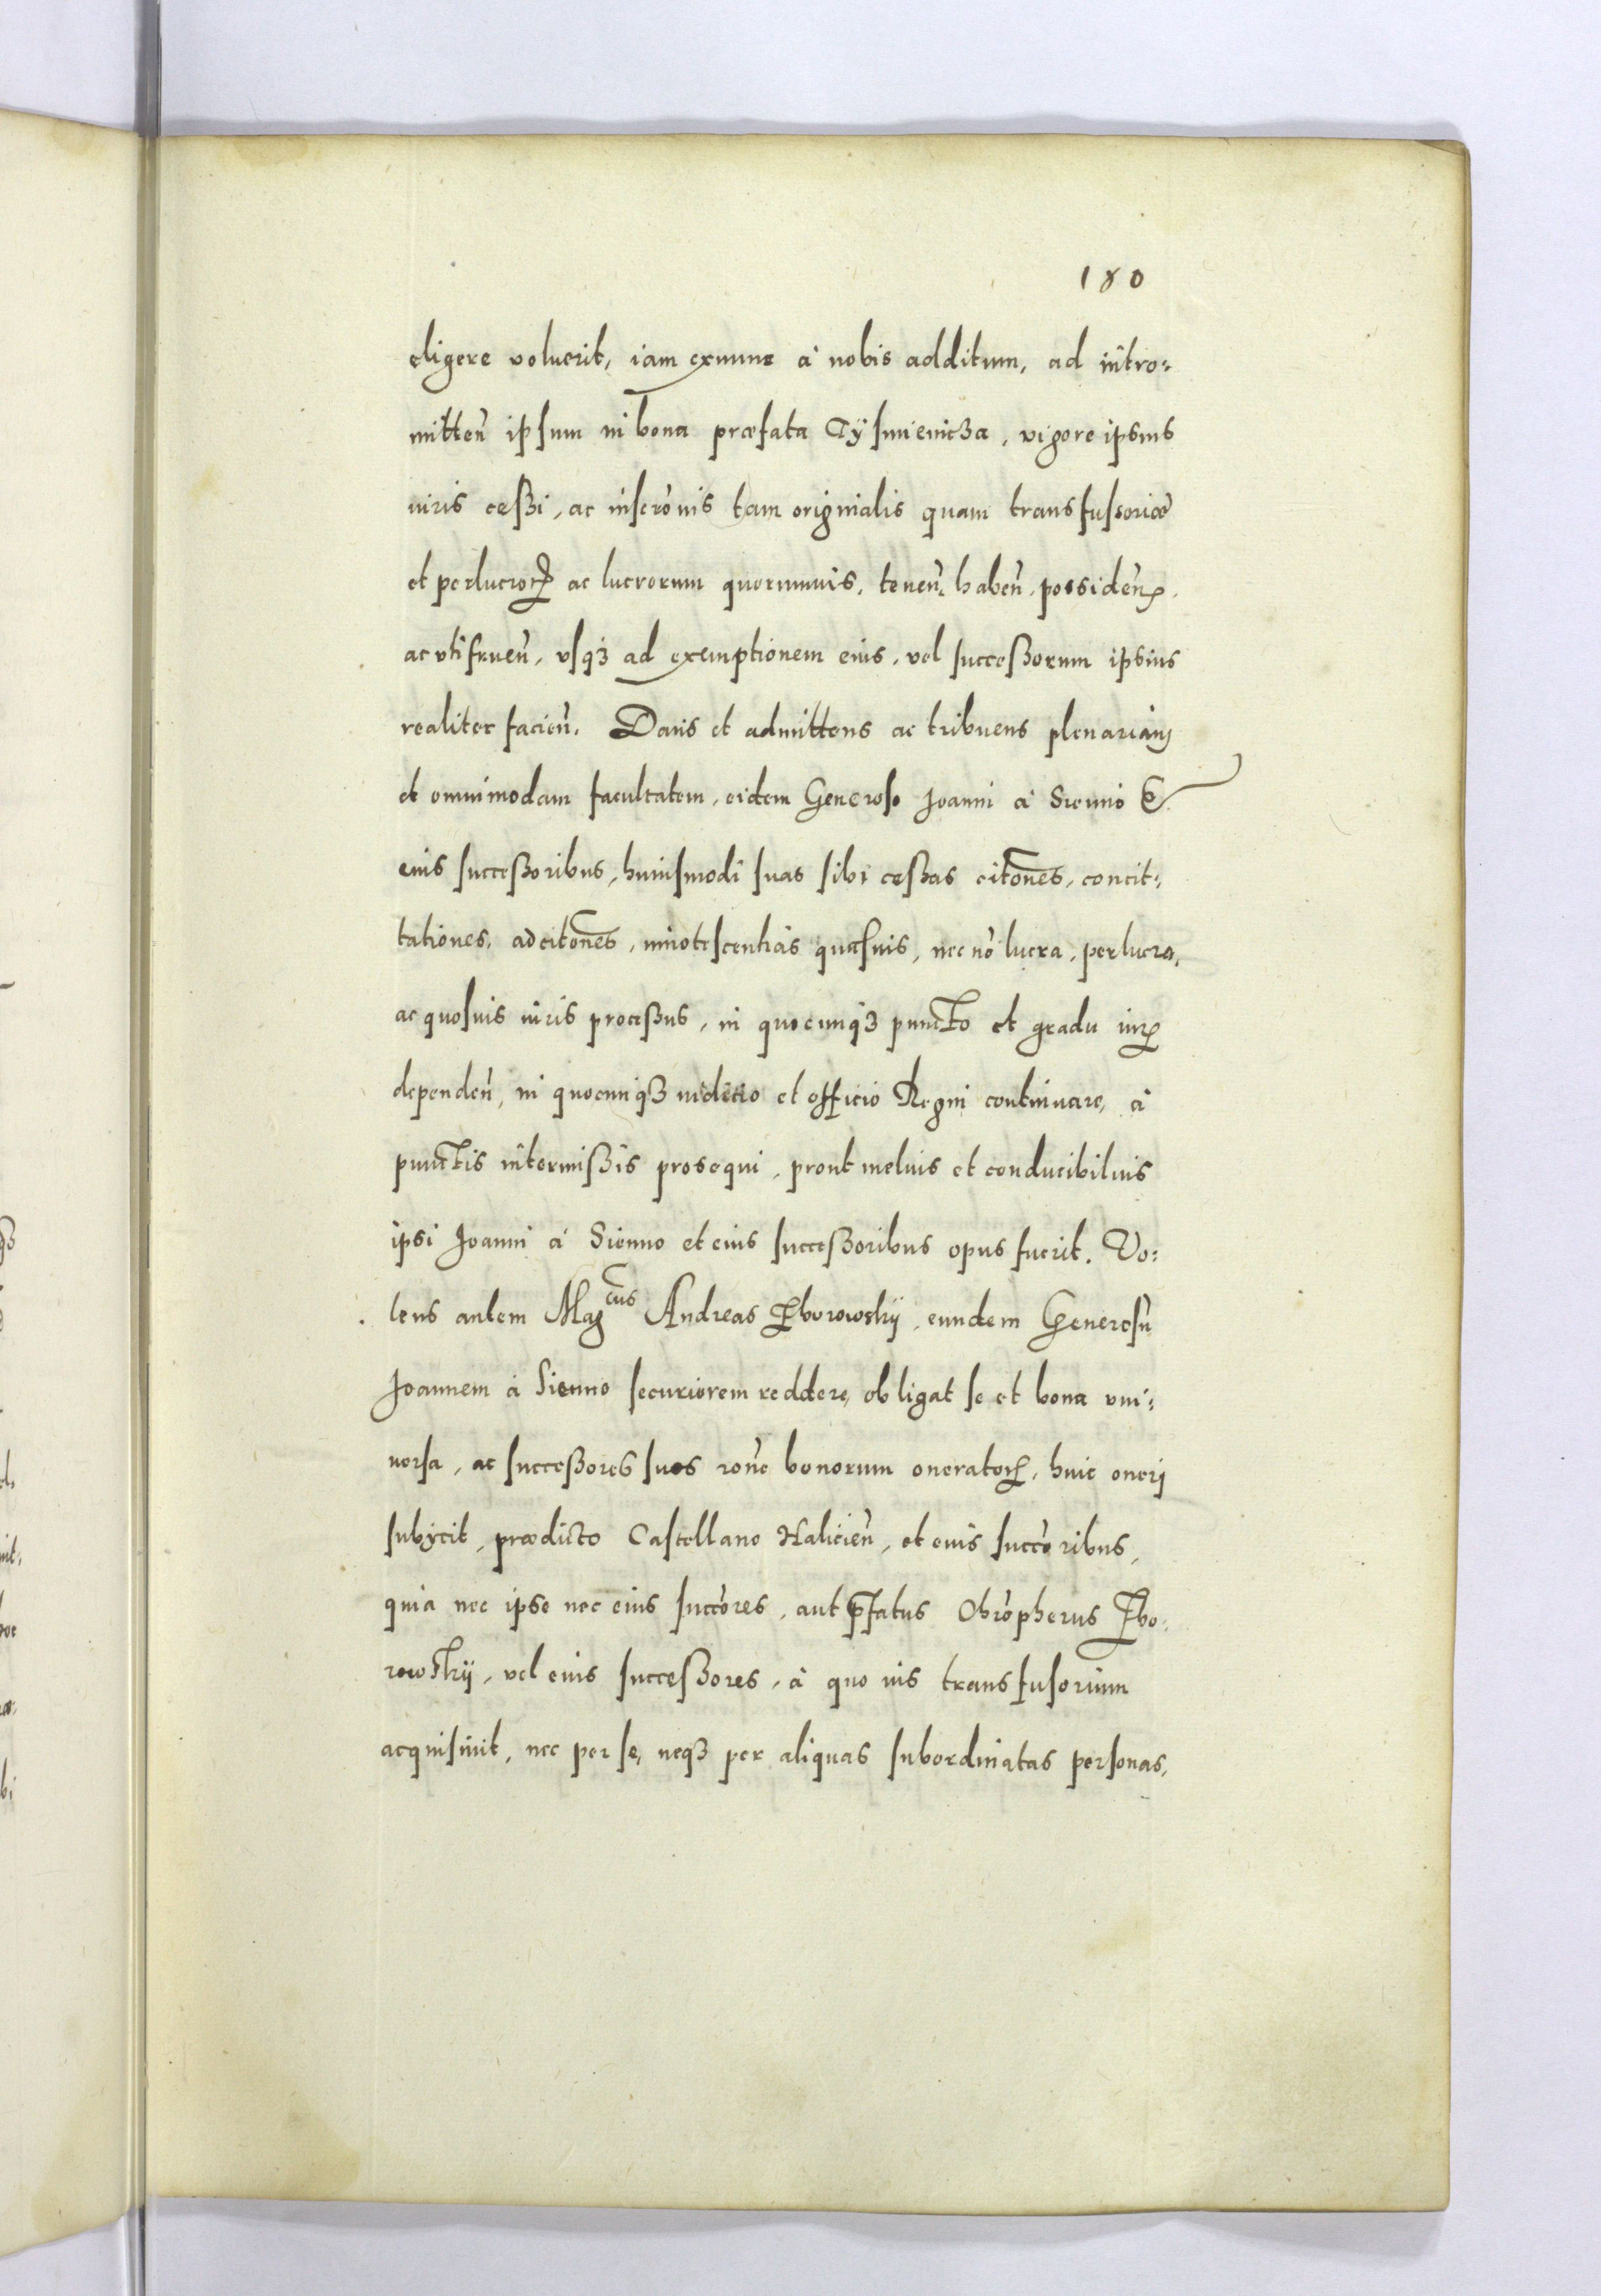 180
eligere voluerit, iam exnunc à nobis additum, ad intro=
mitten̄ ipsum in bona præfata Tÿsmienicza, vigore ipsius
iuris cessi, ac inscrōnis tam originalis quam transfusoriæ
et perlucrorꝝ ac lucrorum quorumuis, tenen̄, haben̄, possiden̄,
ac vtifruen̄, vsqꝫ ad exemptionem eius, vel successorum ipsius
realiter facien̄. Dans et admittens ac tribuens plenariam
et omnimodam facultatem, eidem Generoso Joanni à Sienno &
eius successoribus, huiusmodi suas sibi cessas citōnes, concit=
tationes, adcitōnes, innotescentias quasuis, nec nō lucra, perlucra,
ac quosuis iuris processus, in quocunqꝫ puncto et gradu iurꝭ
dependen̄, in quocunqꝫ iudicio et officio Regni continuare, à
punctis intermissis prosequi, prout melius et conducibilius
ipsi Joanni à Sienno et eius successoribus opus fuerit. Vo=
lens autem Mag^cus Andreas Zborowskij, eundem Generosū
Joannem à Sienno securiorem reddere, obligat se et bona vni=
uersa, ac successores suos rōne bonorum oneratorꝝ, huic oneri
subijcit, prædicto Castellano Halicien̄, et eius succōribus,
quia nec ipse nec eius succōres, aut p̄fatus Chrōpherus Zbo=
rowskij, vel eius successores, à quo ius transfusorium
acquisiuit, nec per se, neqꝫ per aliquas subordinatas personas,